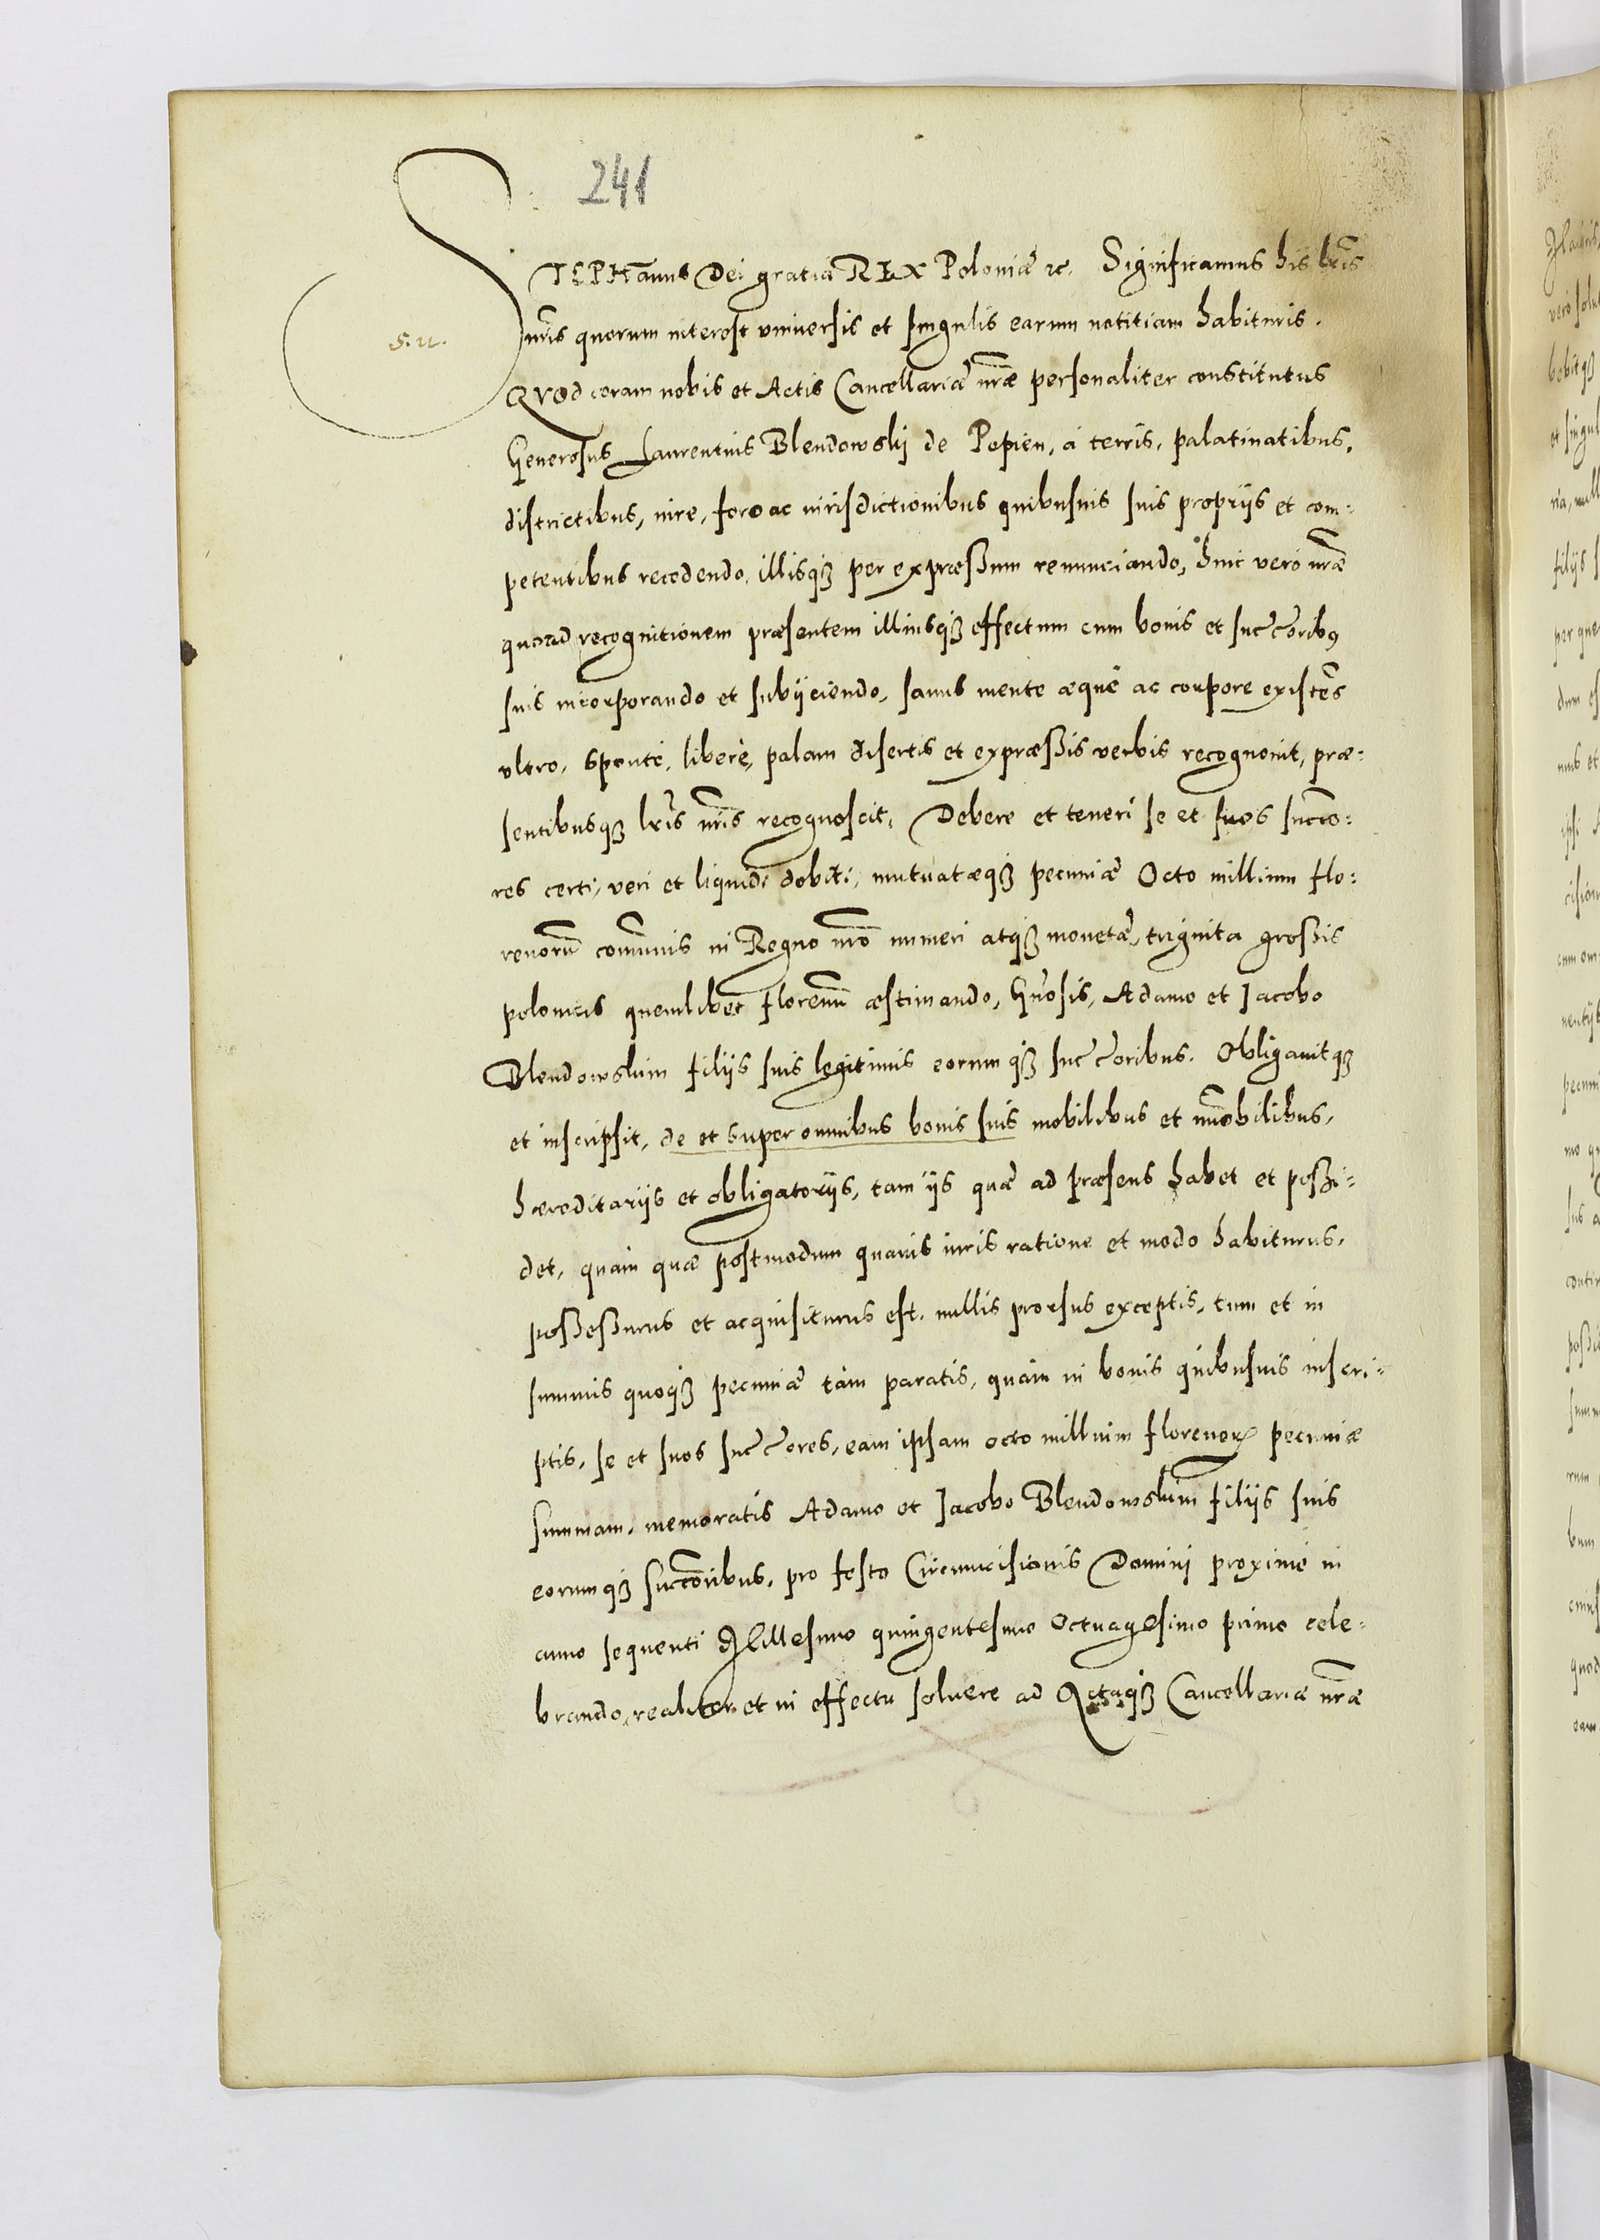 241
STEPHanus Dei gratia REX Poloniæ ꝛc. Significamus his lr̃is
nr̃is quorum interest vniuersis et singulis earum notitiam habituris.
S. R.
QVod coram nobis et Actis Cancellariæ nr̃æ personaliter constitutus
Generosus Laurentius Blendowskj de Popien, à terris, palatinatibus,
districtibus, iure, foro ac iurisdictionibus quibusuis suis proprijs et com-
petentibus recedendo, illisqꝫ per expræssum renunciando, huic verò nr̃æ
quoad recognitionem præsentem illiusqꝫ effectum cum bonis et succc̃oribꝰ
suis incorporando et subijciendo, sanus mente æquè ac corpore existẽs
vltro, spontè, liberè, palam disertis et expræssis verbis recognouit, præ-
sentibusqꝫ lr̃is nr̃is recognoscit, Debere et teneri se et suos succo-
res certi, veri et liquidi debiti, mutuatæqꝫ pecuniæ Octo millium flo-
renorũ com̃unis in Regno nr̃o numeri atqꝫ monetæ, triginta grossis
polonicis quemlibet florenũ æstimando, Gñosis, Adamo et Jacobo
Blendowskim filijs suis legitimis eorumqꝫ succc̃oribus. Obligauitqꝫ
et inscripsit, de et super omnibus bonis suis mobilibus et im̃obilibus,
hæreditarijs et obligatorijs, tam ijs quæ ad præsens habet et possi-
det, quàm quæ postmodum quauis iuris ratione et modo habiturus,
possessurus et acquisiturus est, nullis prorsus exceptis, tum et in
summis quoqꝫ pecuniæ tàm paratis, quàm in bonis quibusuis inscri-
ptis, se et suos succc̃ores, eam ipsam octo millium florenorꝝ pecuniæ
summam, memoratis Adamo et Jacobo Blendowskim filijs suis
eorumqꝫ succc̃oribus, pro festo Circumcisionis Domini proximè in
anno sequenti Millesimo quingentesimo Octuagesimo primo cele-
brando, realiter et in effectu soluere ad Actaqꝫ Cancellariæ nr̃æ